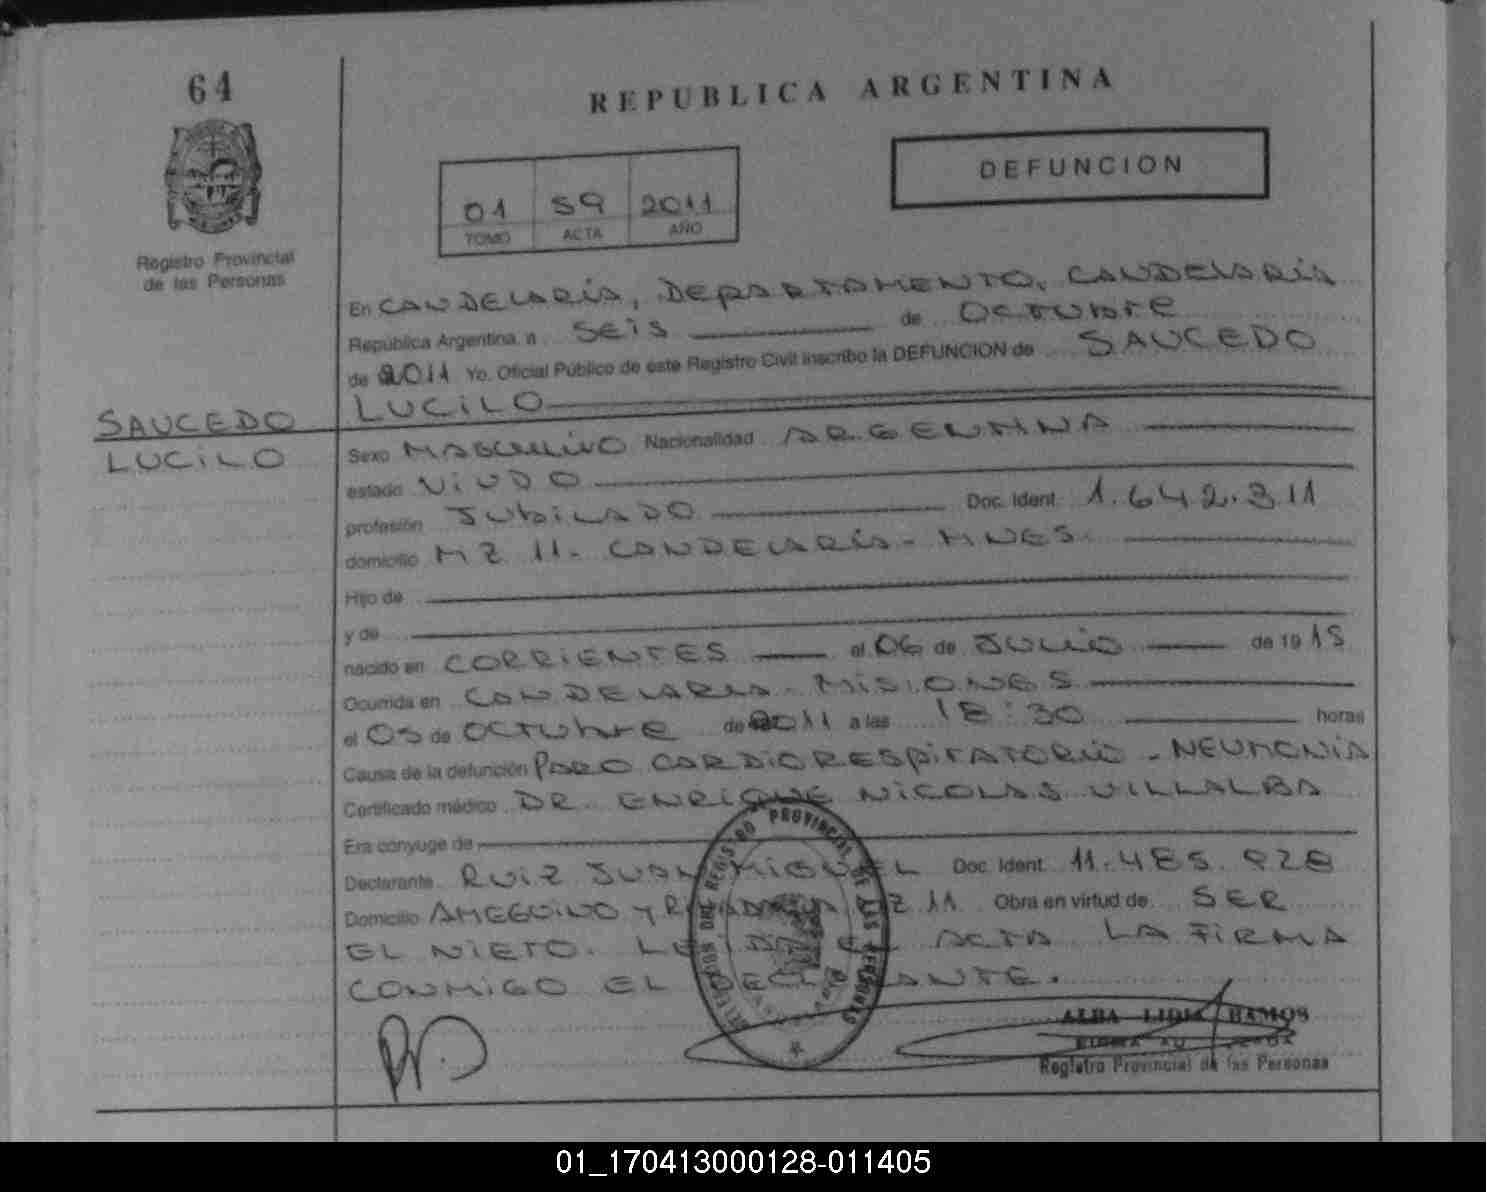 64
REPUBLICA ARGENTINA
DEFUNCION
01 59 2011
TOMO ACTA AÑO
Registro Provincial
de las Personas
En CANDELARIA, DEPARTAMENTO, CANDELARIA
República Argentina, a SEIS de OCTUBRE
de 2011 Yo, Oficial Público de este Registro Civil inscribo la DEFUNCION de SAUCEDO
LUCILO
SAUCEDO
LUCILO
Sexo MASCULINO Nacionalidad ARGENTINA
estado VIUDO
profesión JUBILADO Doc. Ident. 1.642.311
domicilio MZ 11- CANDELARIA- MNES
Hijo de
y de
nacido en CORRIENTES el 06 de JULIO de 1915
Ocurrida en CANDELARIA- MISIONES
el 05 de OCTUBRE de 2011 a las 18:30 horas
Causa de la defunción PARO CARDIORESPIRATORIO - NEUMONIA
Certificado médico DR. ENRIQUE NICOLAS VILLALBA
Era cónyuge de
Declarante RUIZ JUAN MIGUEL Doc. Ident. 11.485.928
Domicilio AMEGUINO Y MZ 11 Obra en virtud de SER
EL NIETO. ACTA LA FIRMA
CONMIGO EL DECLARANTE.
REGISTRO PROVINCIAL DE LAS PERSONAS
ALBA LIDIA RAMOS
FIRMA
Registro Provincial de las Personas
01_170413000128-011405